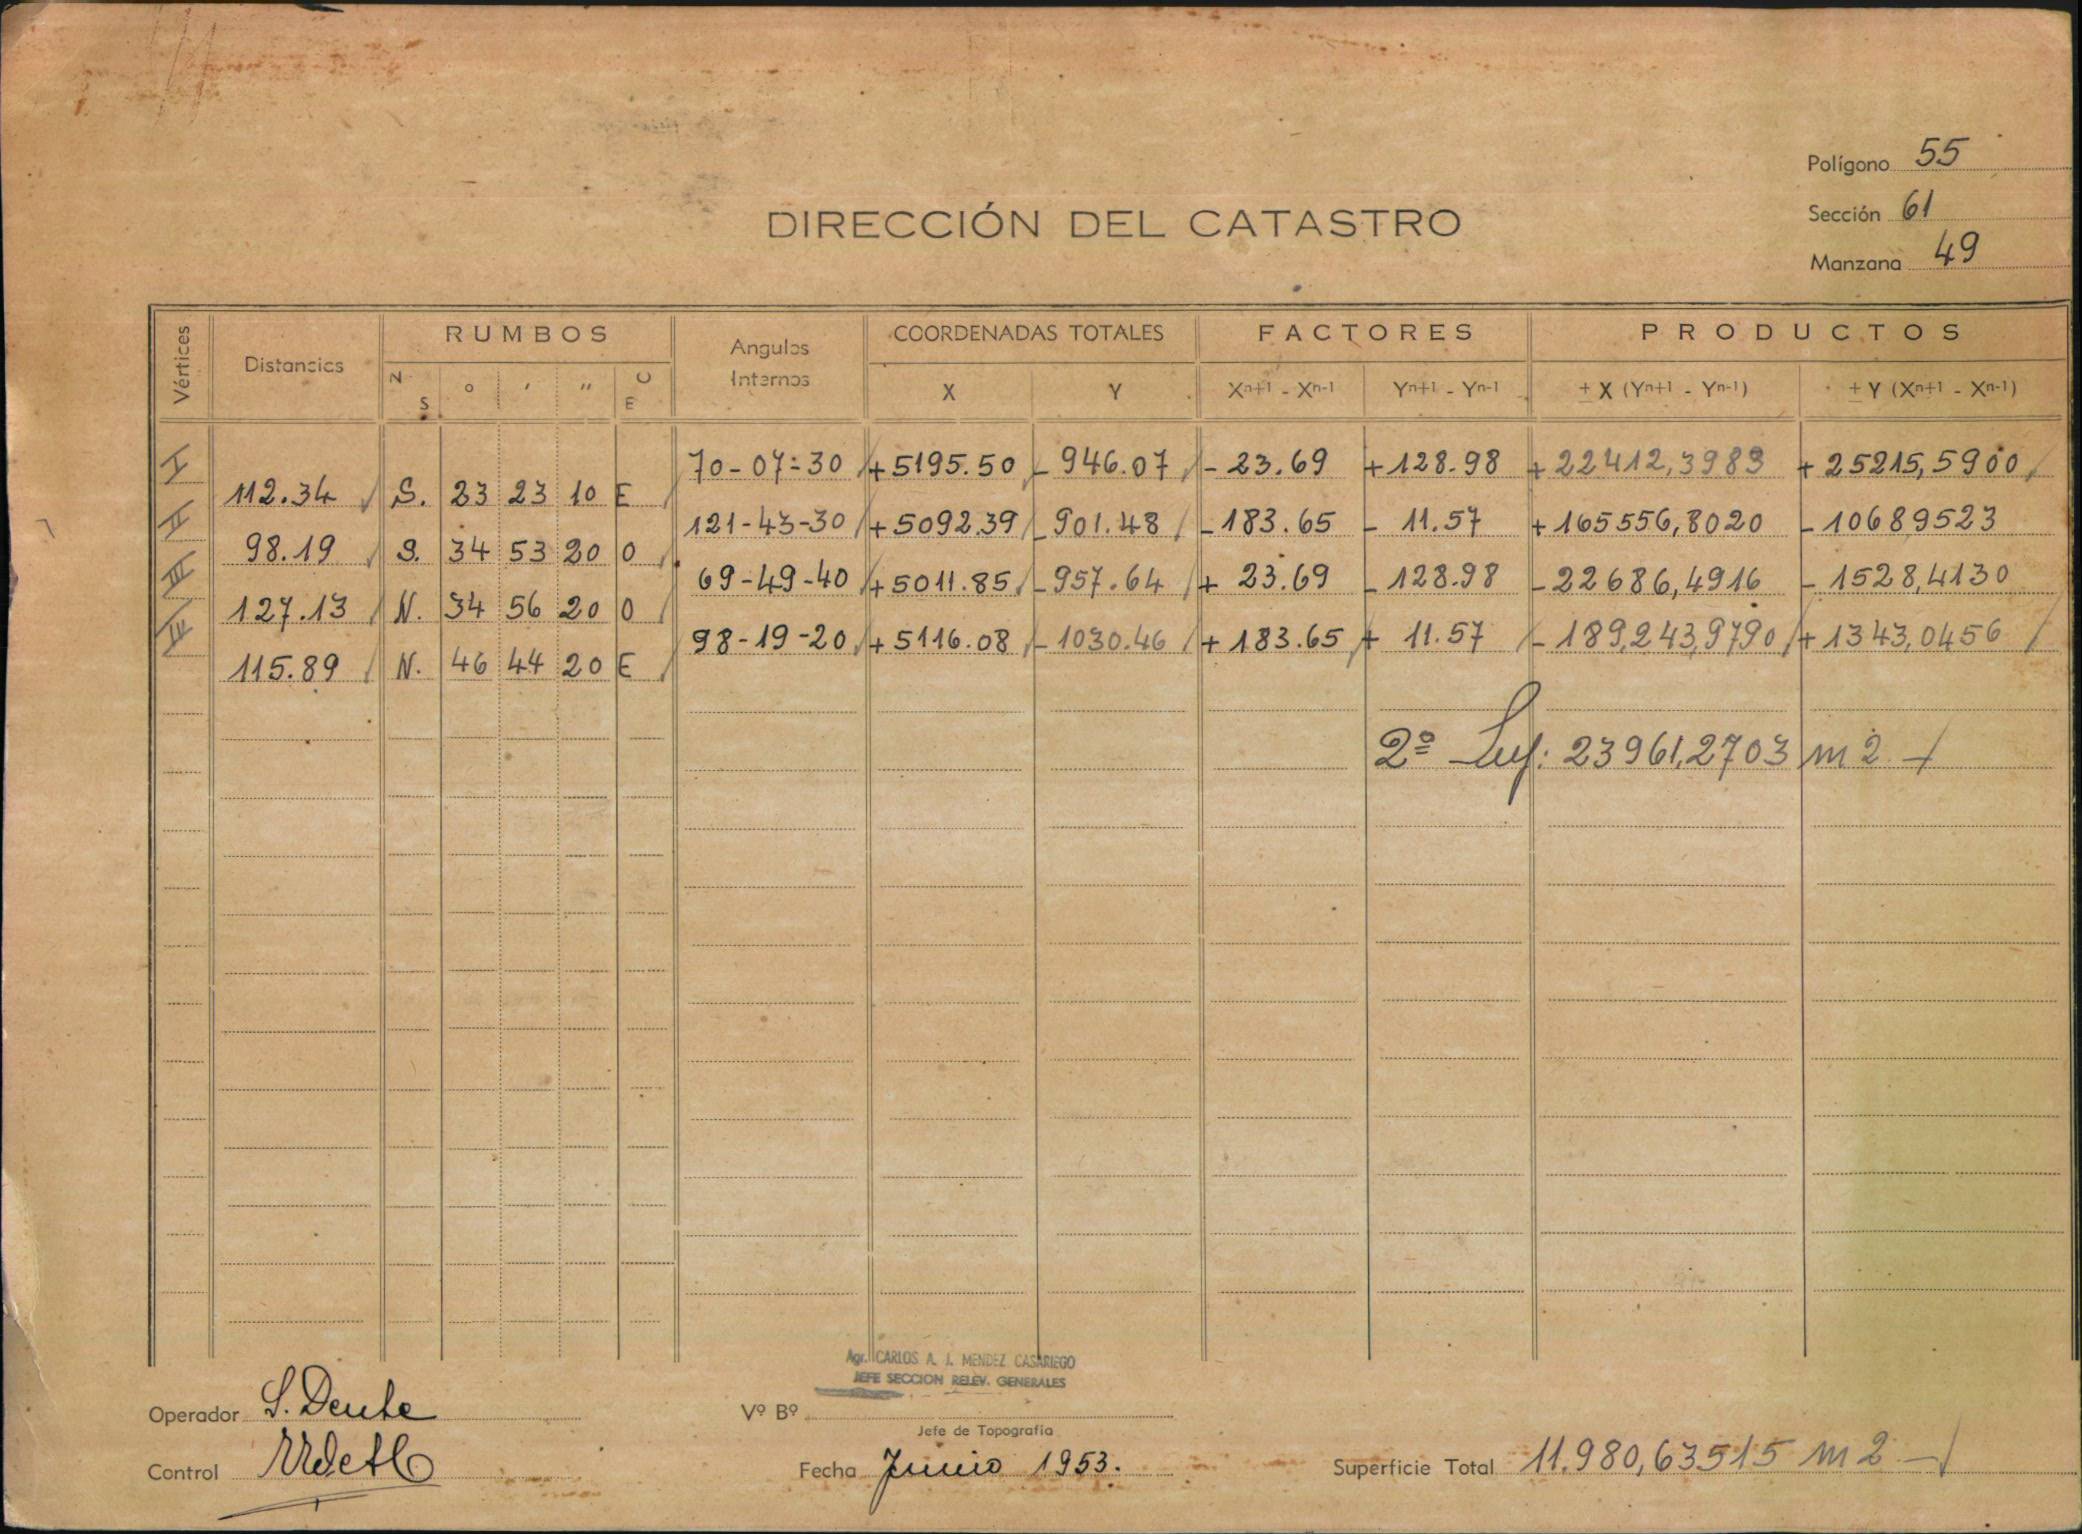 Polígono 55
Sección 61
Manzana 49
DIRECCIÓN DEL CATASTRO
Vértices Distancias RUMBOS Angulos Internos COORDENADAS TOTALES FACTORES PRODUCTOS
N S ° ' " O E X Y Xn+1 - Xn-1 Yn+1 - Yn-1 ± X (Yn+1 - Yn-1) ± Y (Xn+1 - Xn-1)
I 70-07-30 +5195.50 - 946.07 - 23.69 +128.98 +22412,3983 +25215,5900
112.34 S. 23 23 10 E
II 121-43-30 +5092.39 - 901.48 - 183.65 - 11.57 +165556,8020 - 10689523
98.19 S. 34 53 20 O
III 69-49-40 +5011.85 - 957.64 + 23.69 - 128.98 - 22686,4916 - 1528,4130
127.13 N. 34 56 20 O
IV 98-19-20 +5116.08 - 1030.46 + 183.65 + 11.57 - 189,243,9790 + 1343,0456
115.89 N. 46 44 20 E
2º Sup: 23961,2703 m2
Agr. CARLOS A. J. MENDEZ CASARIEGO
JEFE SECCION RELEV. GENERALES
Operador S. Dente
Vº Bº
Jefe de Topografía
Control
Fecha Junio 1953.
Superficie Total 11.980,63515 m2